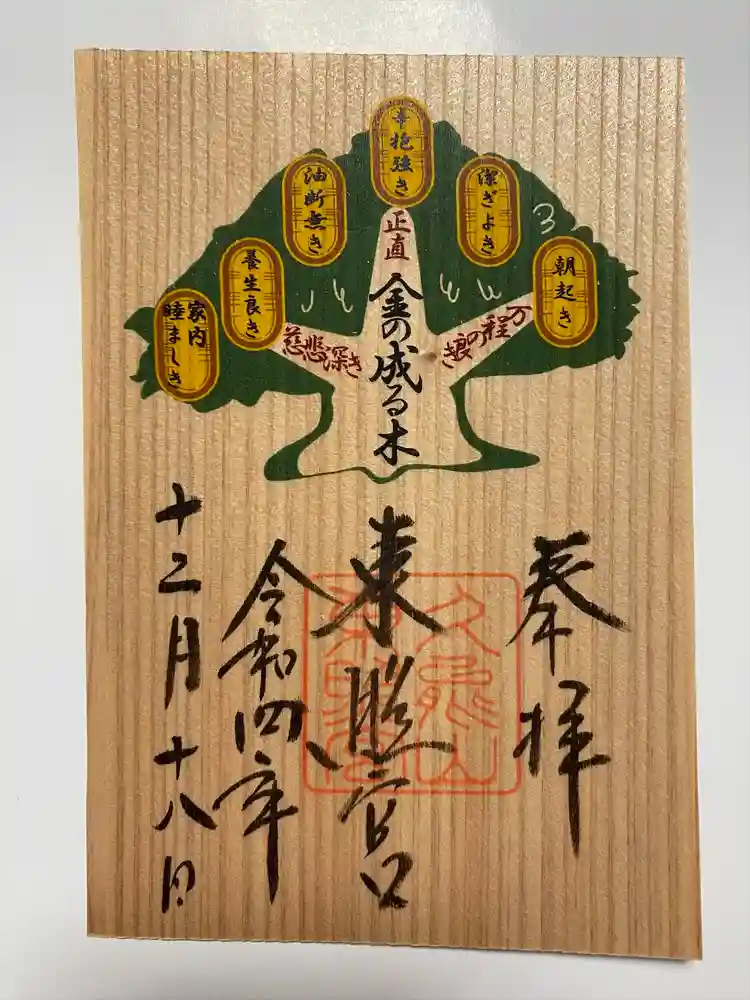 朝起き
潔ぎよき
辛抱強き
油断無き
養生良き
家内
睦ましき
万程の良き
正直
慈悲深き
金の成る木
奉拝
東照宮
久能山
東照宮
令和四年
十二月十八日